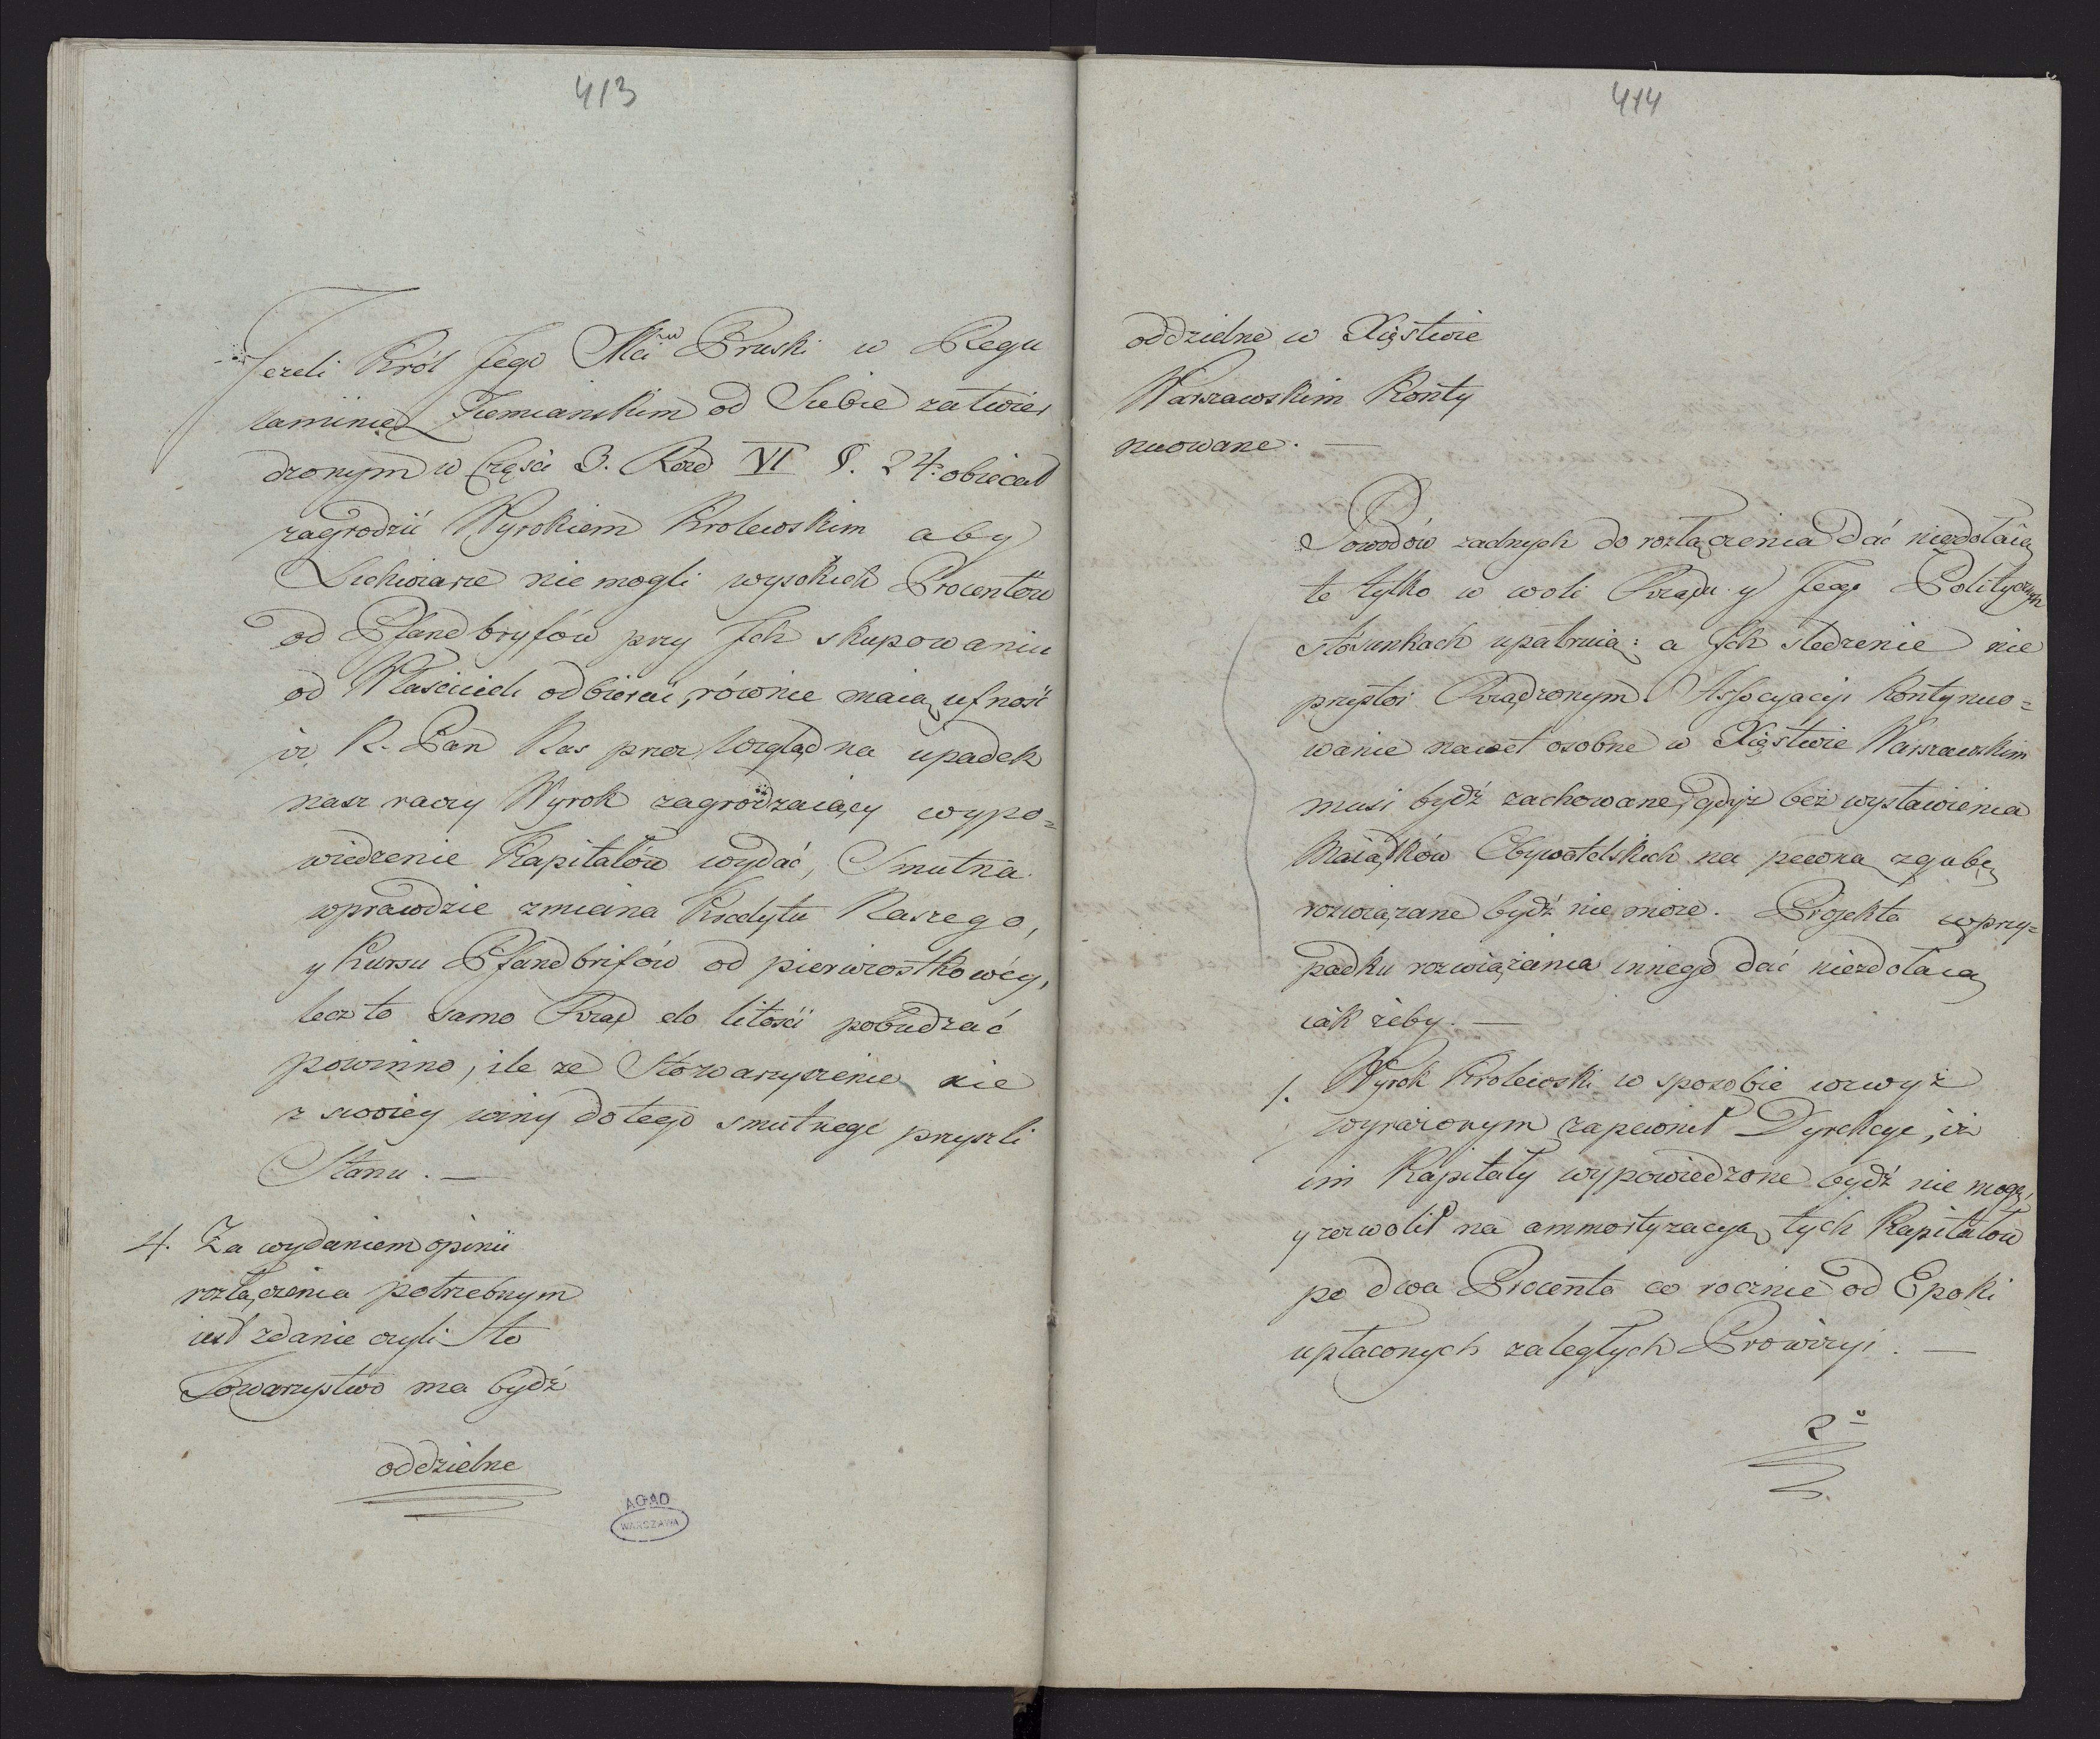 413
Jezeli Król Jego Mci Pruski w Regu
laminie Ziemianskim od Siebie zatwier
dzonym w Części 3. Rozd VI §. 24. obiecał
zagrodzić Wyrokiem Krolewskim aby
Lichwiarze nie mogli wysokich Procentow
od Pfandbryfów przy Jch skupowaniu
od Właścicieli odbierać, równie maią ufność
iż N. Pan Nas przez Wzgląd na upadek
nasz raczy Wyrok zagrodzaiący wypo=
wiedzenie Kapitałów wydać, Smutna
wprawdzie zmiana Kredytu Naszego,
y Kursu Pfandbrifów od pierwiostkowéy,
lecz to samo Rząd do litości pobudzać
powinno, ile ze Stowarzyszenie nie
z swoiey winy do tego smutnego przyszli
Stanu. —
4. Za wydaniem opinii
rozłączenia potrzebnym
iest zdanie czyli to
Towarzystwo ma bydź
oddzielne
AGAD
WARSZAWA
414
oddzielne w Xięstwie
Warszawskim Konty
nuowane. —
Powodów zadnych do rozłączenia dać niezdołaią
te tylko w woli Rządu y Jego Politycznych
stósunkach upatruią: a Jch sledzenie nie
przystoi Rządzonym. Assocyacyi Kontynuo=
wanie nawet osobne w Xięstwie Warszawskim
musi bydź zachowane, gdyż bez wystawienia
Maiątków Obywatelskich na pewną zgubę
rozwiązane bydź nie może. Projekta wprzy=
padku rozwiązania innego dać niezdołaią
iak żeby. —
1. Wyrok Krolewski w sposobie wzwyż
wyrażonym zapewnił Dyrekcye, iż
im Kapitały wypowiedzone bydź nie mogą,
y zezwolił na ammortyzacyą tych Kapitałow
po dwa Procenta co rocznie od Epoki
upłaconych zaległych Prowizyi. —
2º